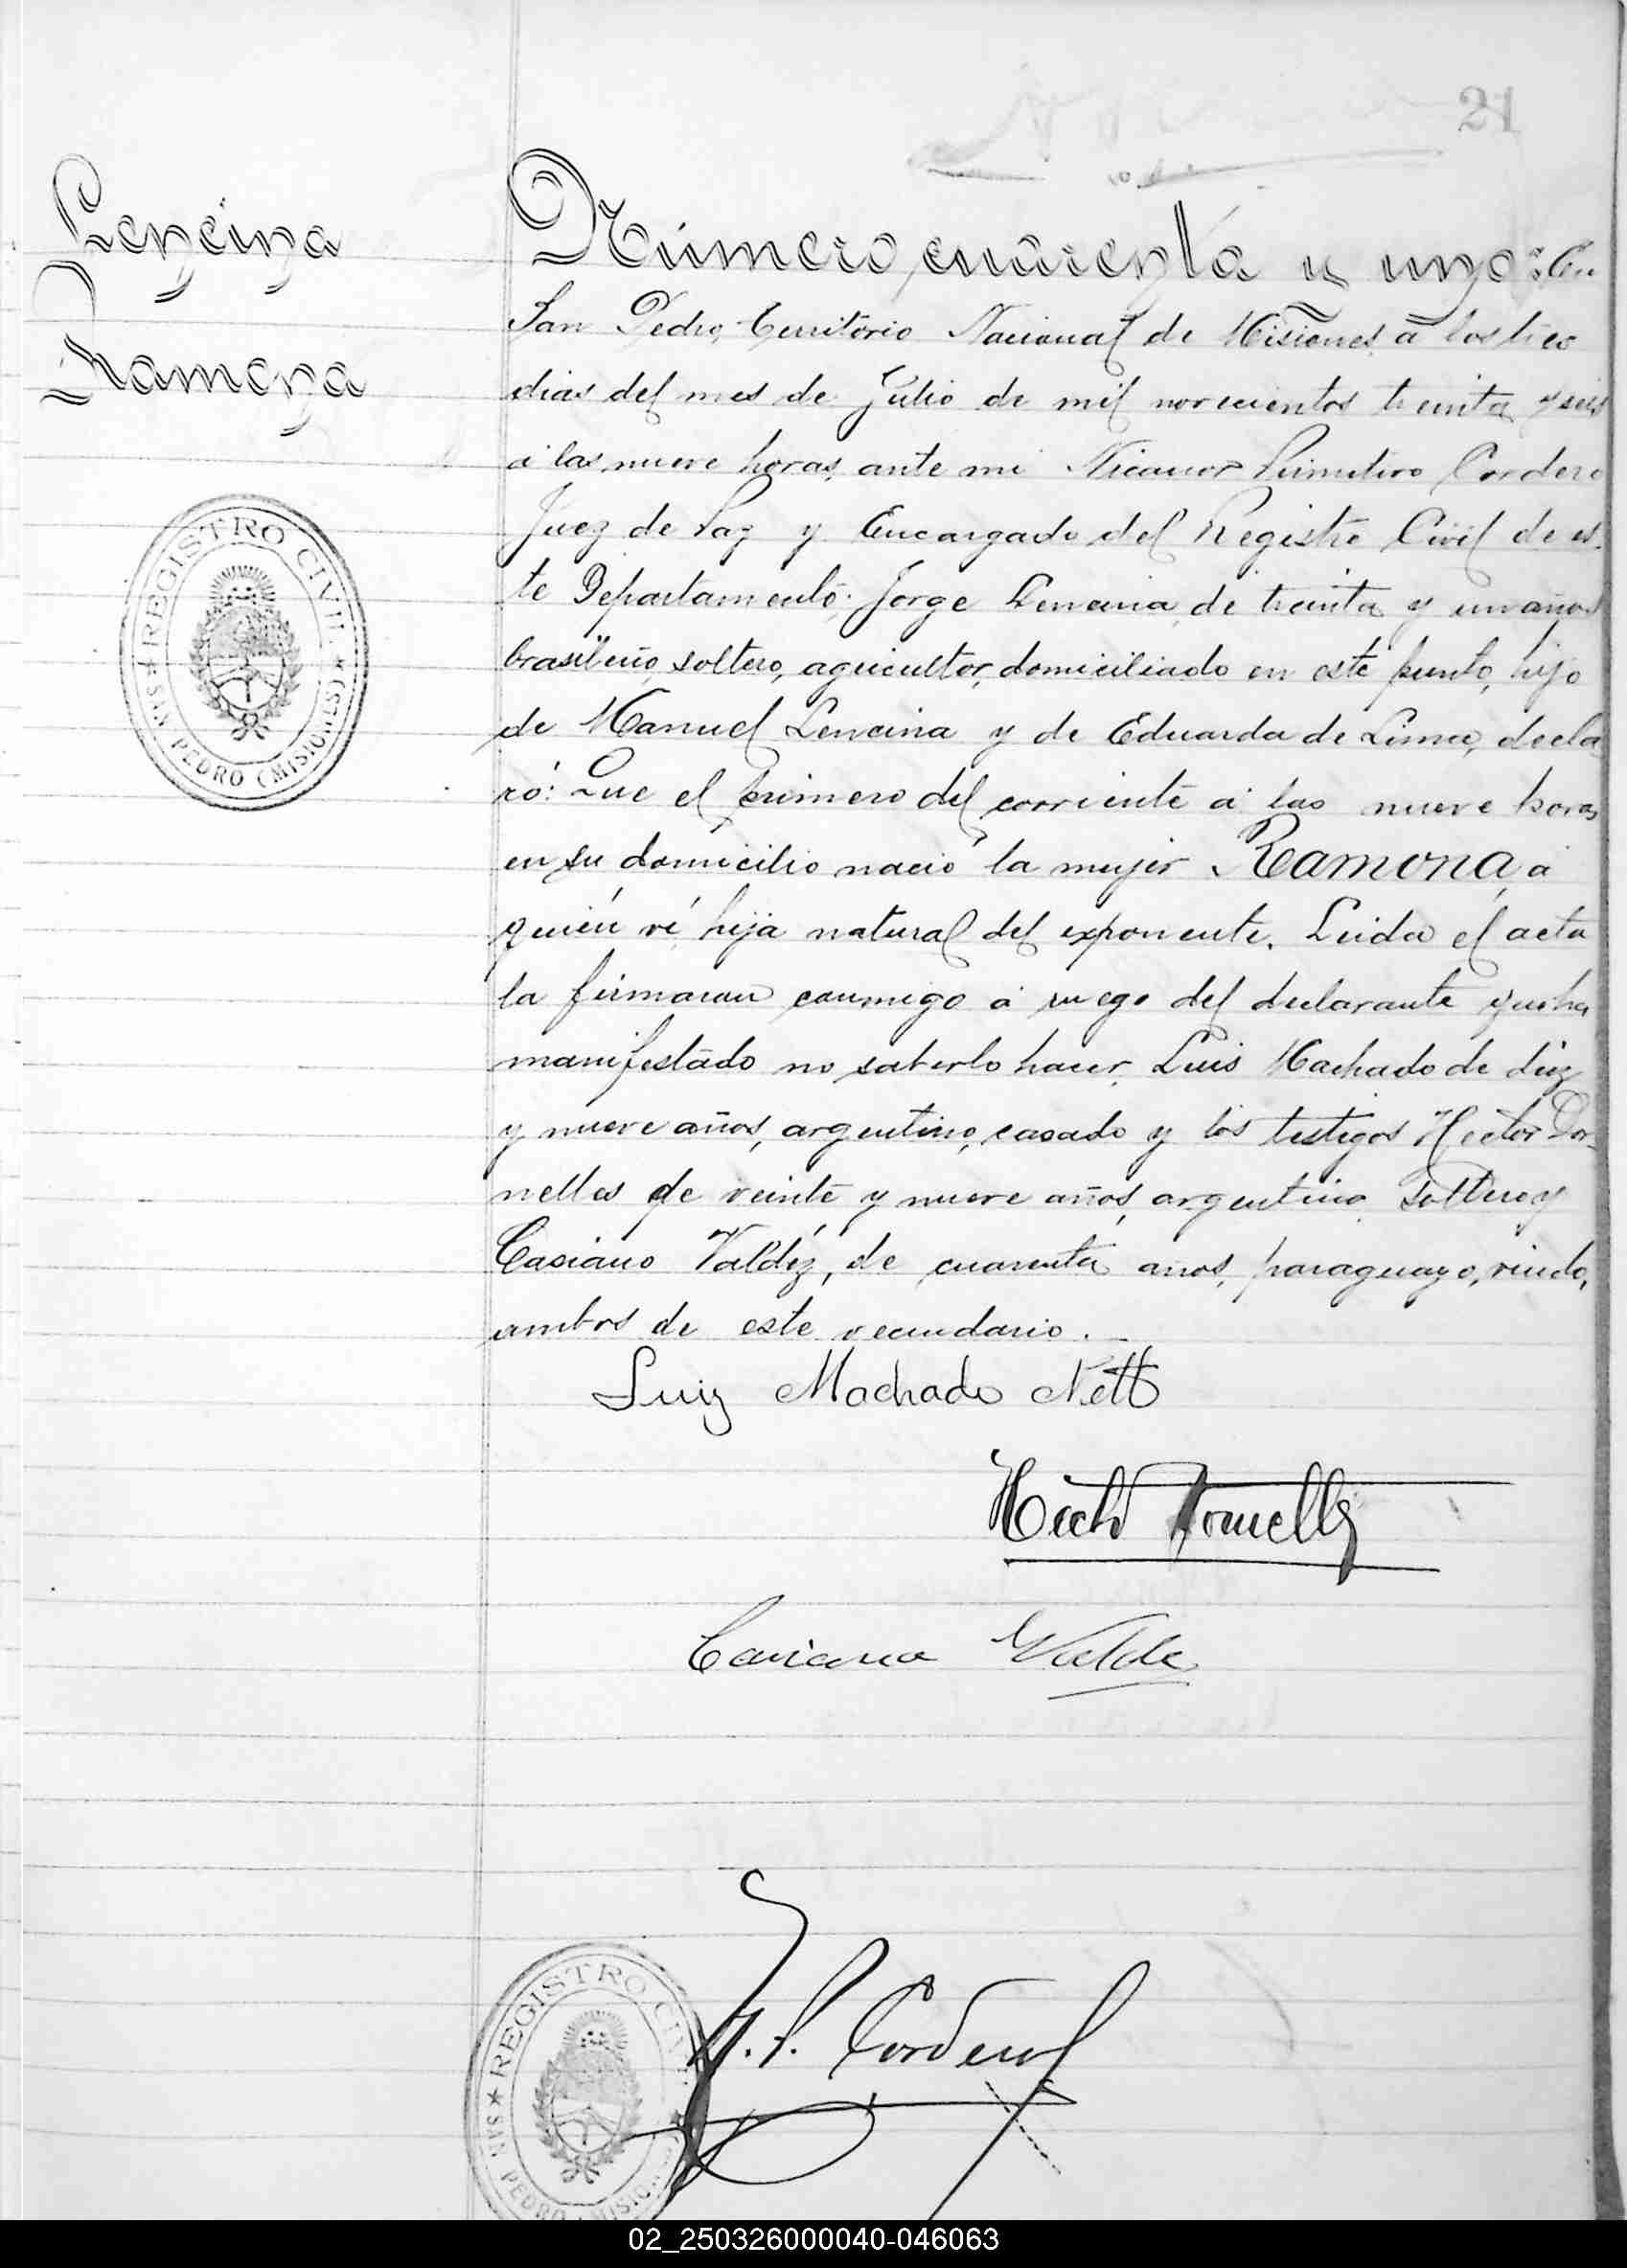 21
Lencina
Ramona
Número cuarenta y uno: En
San Pedro, Territorio Nacional de Misiones, a los tres
dias del mes de Julio de mil novecientos treinta y seis
á las nueve horas, ante mi Nicanor Primitivo Cordero
Juez de Paz y Encargado del Registro Civil de es-
te Departamento; Jorge Lencina, de treinta y un años
brasileño, soltero, agricultor, domiciliado en este punto, hijo
de Manuel Lencina y de Eduarda de Lima, decla
ró: Que el primero del corriente á las nueve horas
en su domicilio nació la mujer Ramona, á
quién ví hija natural del exponente. Leida el acta
la firmaron conmigo á ruego del declarante que ha
manifestado no saberlo hacer, Luis Machado de diez
y nueve años, argentino, casado y los testigos Hector Dor-
nelles de veinte y nueve años, argentino soltero y
Casiano Valdéz, de cuarenta años, paraguayo, viudo,
ambos de este vecindario.
Luiz Machado Nett
Hector Dornelles
Casiano Valde
N. P. Cordero
REGISTRO CIVIL
SAN PEDRO (MISIONES)
REGISTRO CIVIL
SAN PEDRO (MISIO
02_250326000040-046063